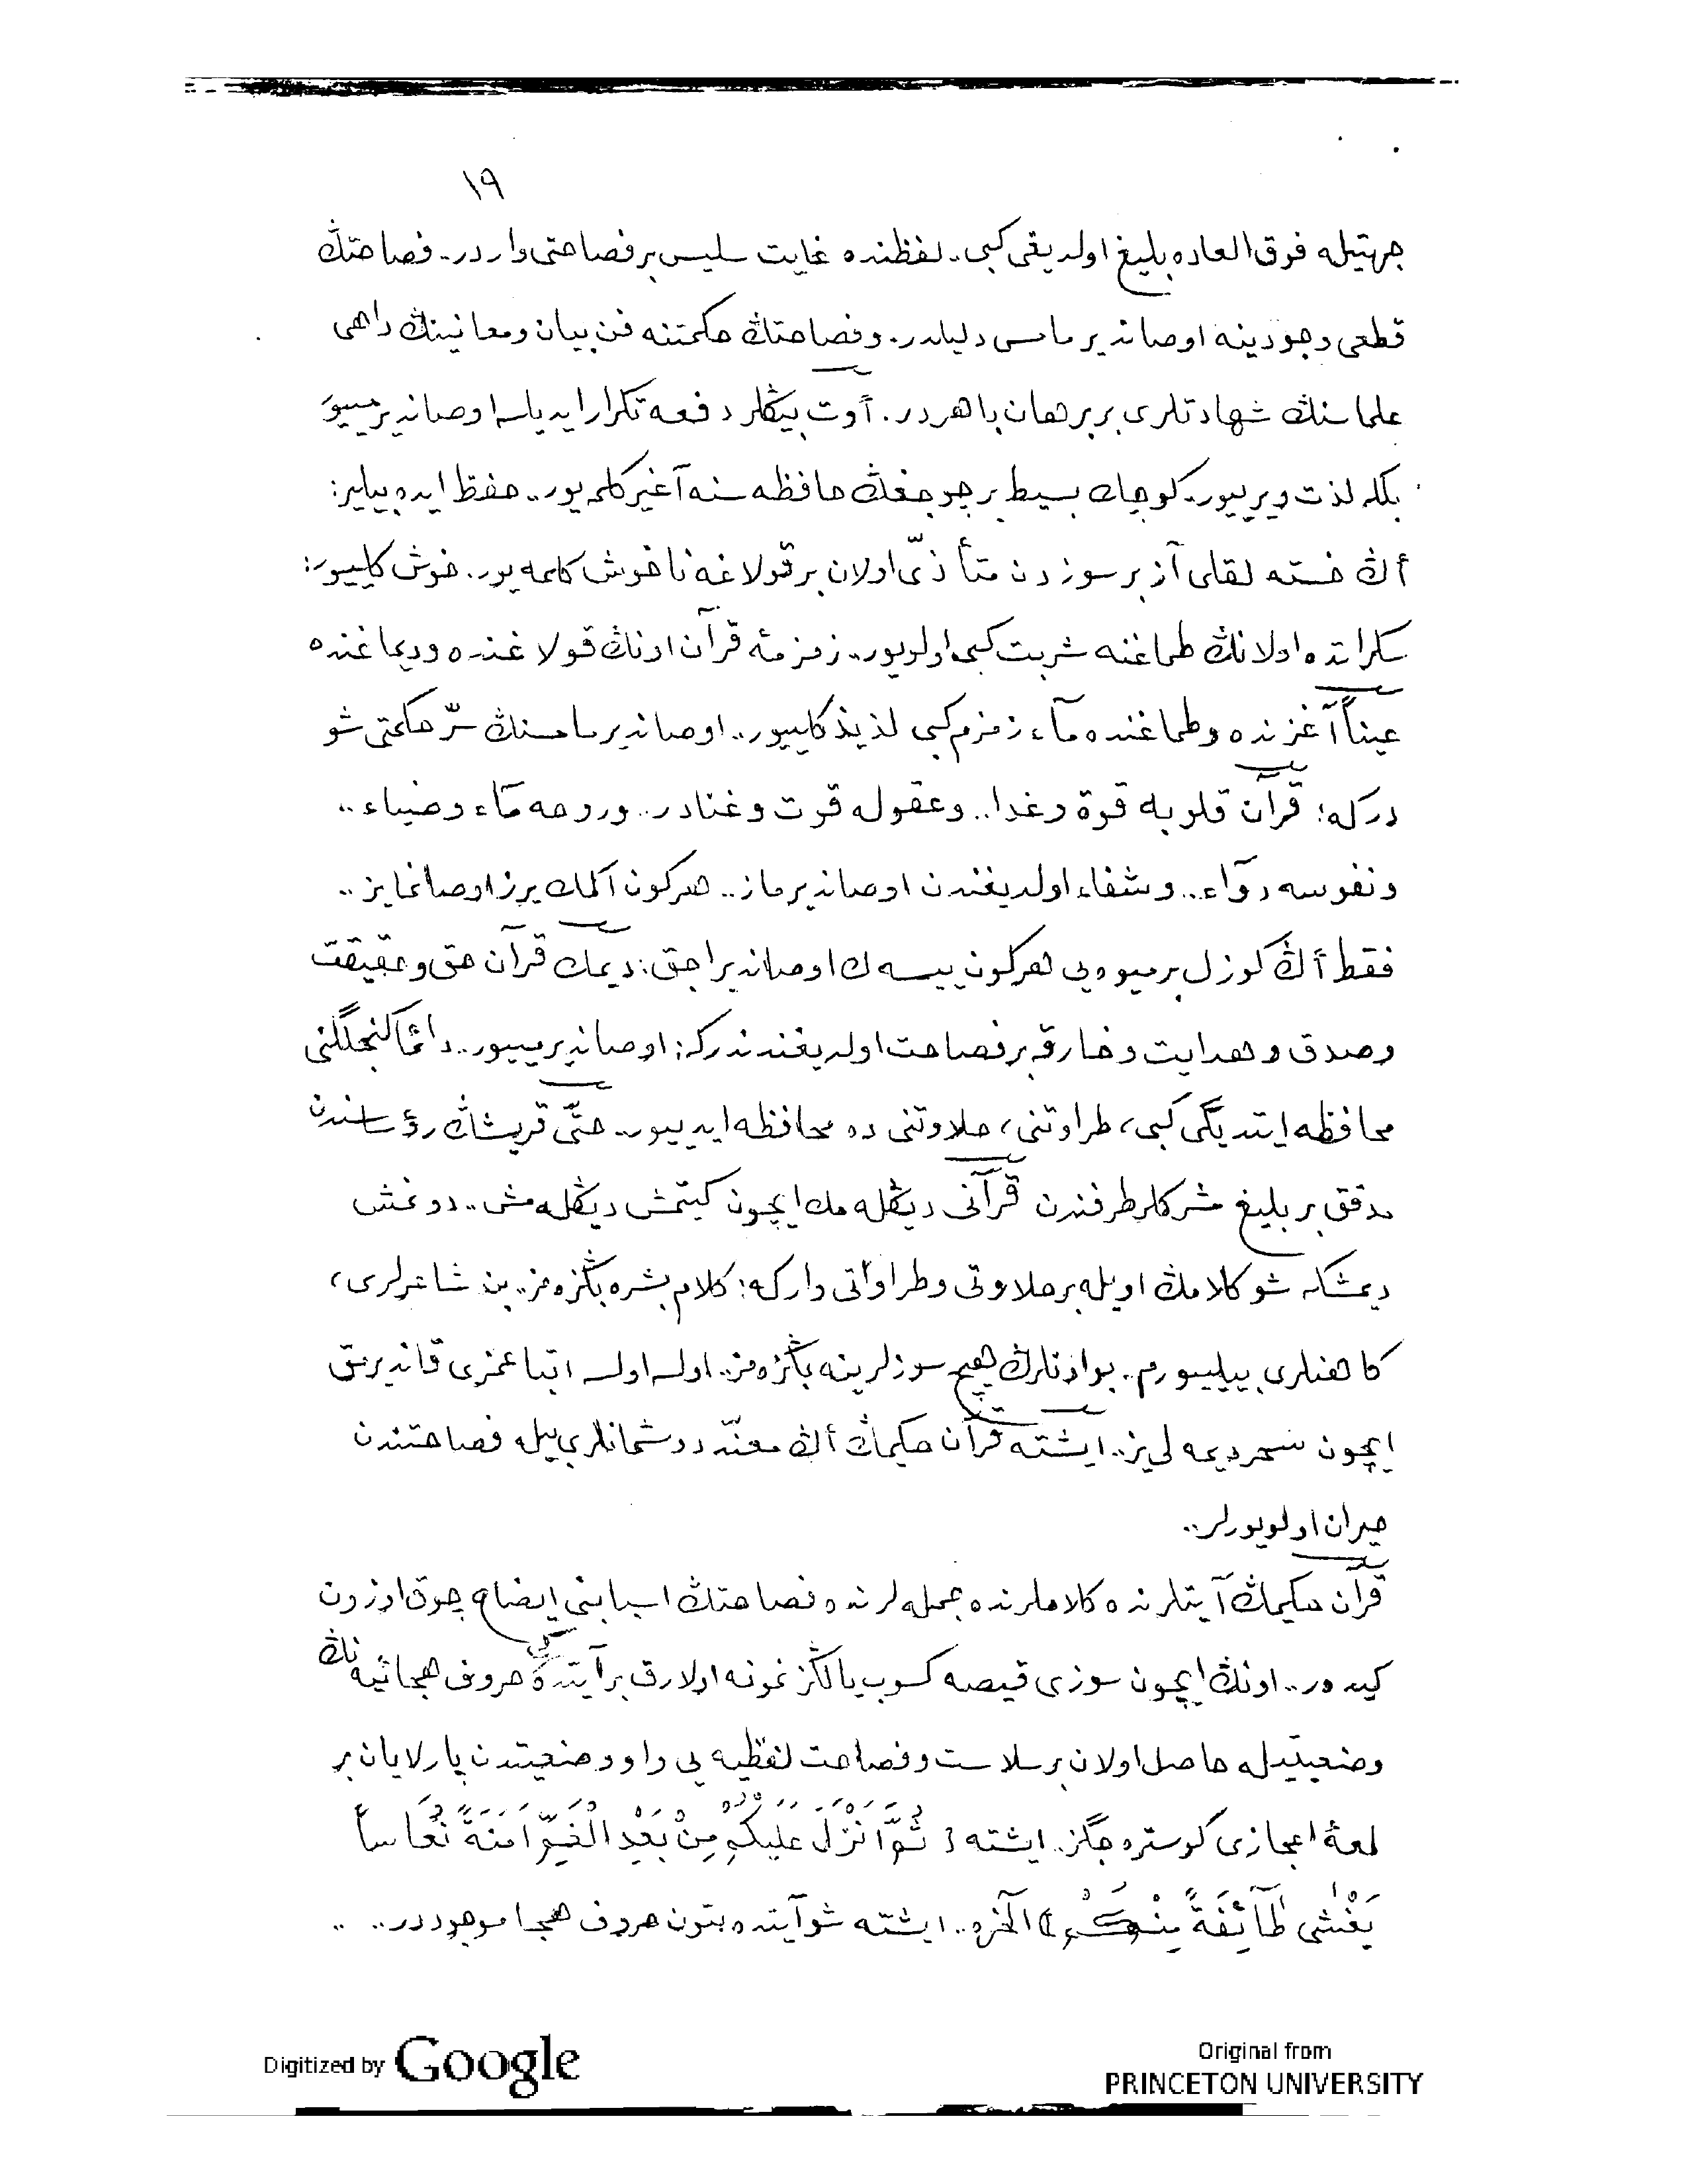 ١٩
جهتيله فوق العاده بليغ اولديغى كبى.. لفظنده غايت سليس بر فصاحتى واردر.. فصاحتڭ
قطعى وجودينه اوصانديرمامسى دليلدر. وفصاحتڭ حكمتنه فن بيان ومعانينڭ داهى
علماسنڭ شهادتلرى بر برهان باهردر. أوت بيڭلر دفعه تكرار ايديلسه اوصانديرمييور
بلكه لذت ويرييور.. كوچك بسيط بر چوجغڭ حافظه سنه آغير كلمه يور.. حفظ ايده بيلير:
أڭ خسته لقلى آز بر سوزدن متأذّى اولان بر قولاغه ناخوش كلمه يور. خوش كلييور:
سكراتده اولانڭ طماغنه شربت كبى اولويور.. زمزمۀ قرآن اونڭ قولاغنده و ديماغنده
عيناً آغزنده وطماغنده مآء زمزم كبى لذيذ كلييور.. اوصانديرمامسنڭ سرّ حكمتى شو
دركه؛ قرآن قلوبه قوة وغدا.. وعقوله قوت وغنادر.. وروحه مآء وضياء..
ونفوسه دوآء.. وشفاء اولديغندن اوصانديرماز.. هركون اكمك يرز اوصانمايز..
فقط أڭ كوزل بر ميوه يى هركون ييسه ك اوصانديراجق: ديمك قرآن حق وحقيقت
وصدق وهدايت وخارقه بر فصاحت اولديغندندركه: اوصانديرمييور.. دائمًا كنجلگنى
محافظه ايتديگى كبى، طراوتنى، حلاوتنى ده محافظه ايدييور.. حتّى قريشڭ رؤساسندن
مدقق بر بليغ مشركلر طرفندن قرآنى ديڭله مك ايچون كيتمش ديڭله مش.. دونمش
ديمشكه شو كلامڭ اويله بر حلاوتى وطراوتى واركه: كلام بشره بڭزه مز.. بن شاعرلرى،
كاهنلرى بيلييورم.. بو اونلرڭ هيچ سوزلرينه بڭزه مز.. اولسه اولسه اتباعمزى قانديرمق
ايچون سحر ديمه لى يز.. ايشته قرآن حكيمڭ أڭ معنّد دوشمانلرى بيله فصاحتندن
حيران اولويورلر..
قرآن حكيمڭ آيتلرنده كلاملرنده جمله لرنده فصاحتڭ اسبابنى ايضاح چوق اوزون
كيدر.. اونڭ ايچون سوزى قيصه كسوب يالڭز نمونه اولارق بر آيتده كى حروف هجائيه نڭ
وضعيتيله حاصل اولان بر سلاست وفصاحت لفظيه يى و او وضعيتدن پارلايان بر
لمعۀ اعجازى كوستره جگز. ايشته ﴿ ثُمَّ اَنْزَلَ عَلَيْكُمْ مِنْ بَعْدِ الْغَمِّ اَمَنَةً نُعَاسًا
يَغْشٰى طَآئِفَةً مِنْكُمْ ﴾ الخره.. ايشته شو آيتده بتون حروف هجا موجوددر.. ..
Digitized by Google
Original from
PRINCETON UNIVERSITY